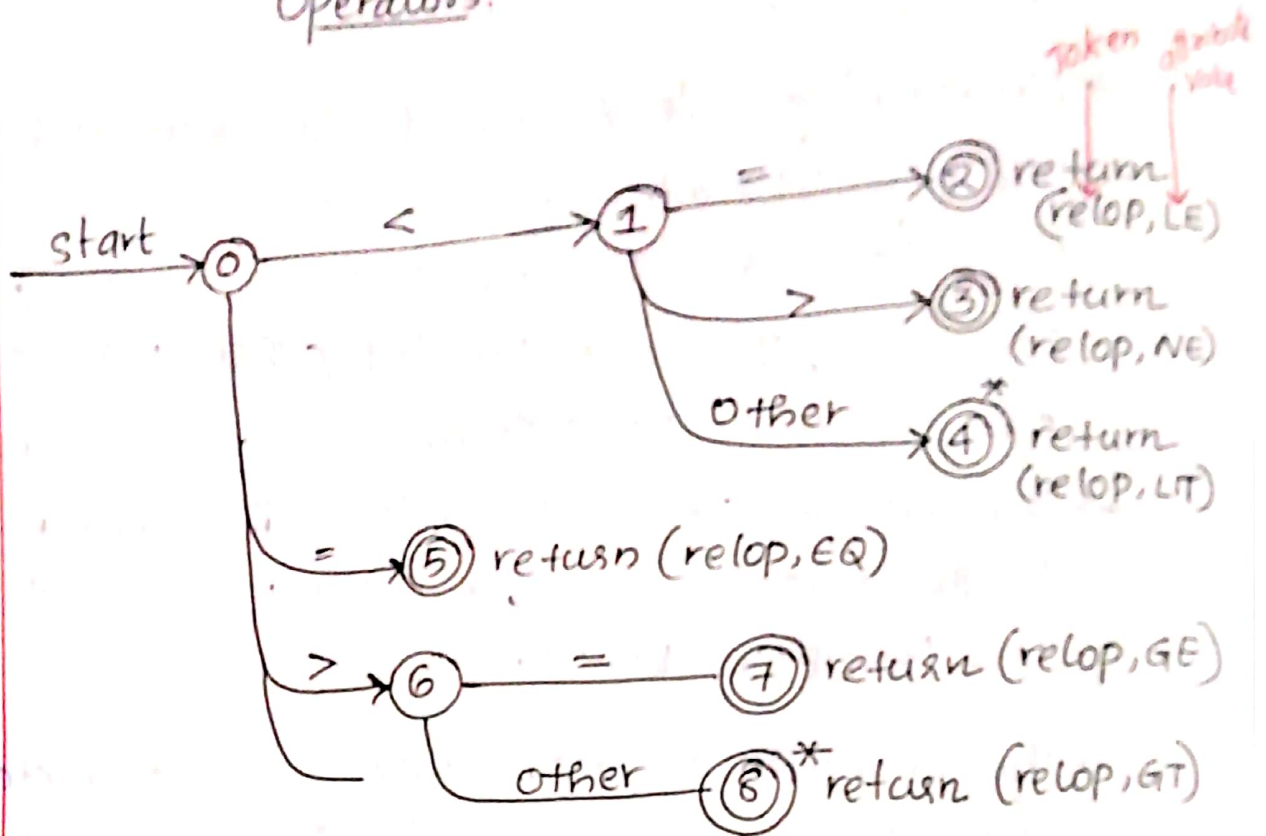 Operators.
Token attribute
value
start
0
<
1
=
2 return
(relop, LE)
>
3 return
(relop, NE)
Other
4 * return
(relop, LT)
=
5 return (relop, EQ)
>
6
=
7 return (relop, GE)
Other
8 * return (relop, GT)